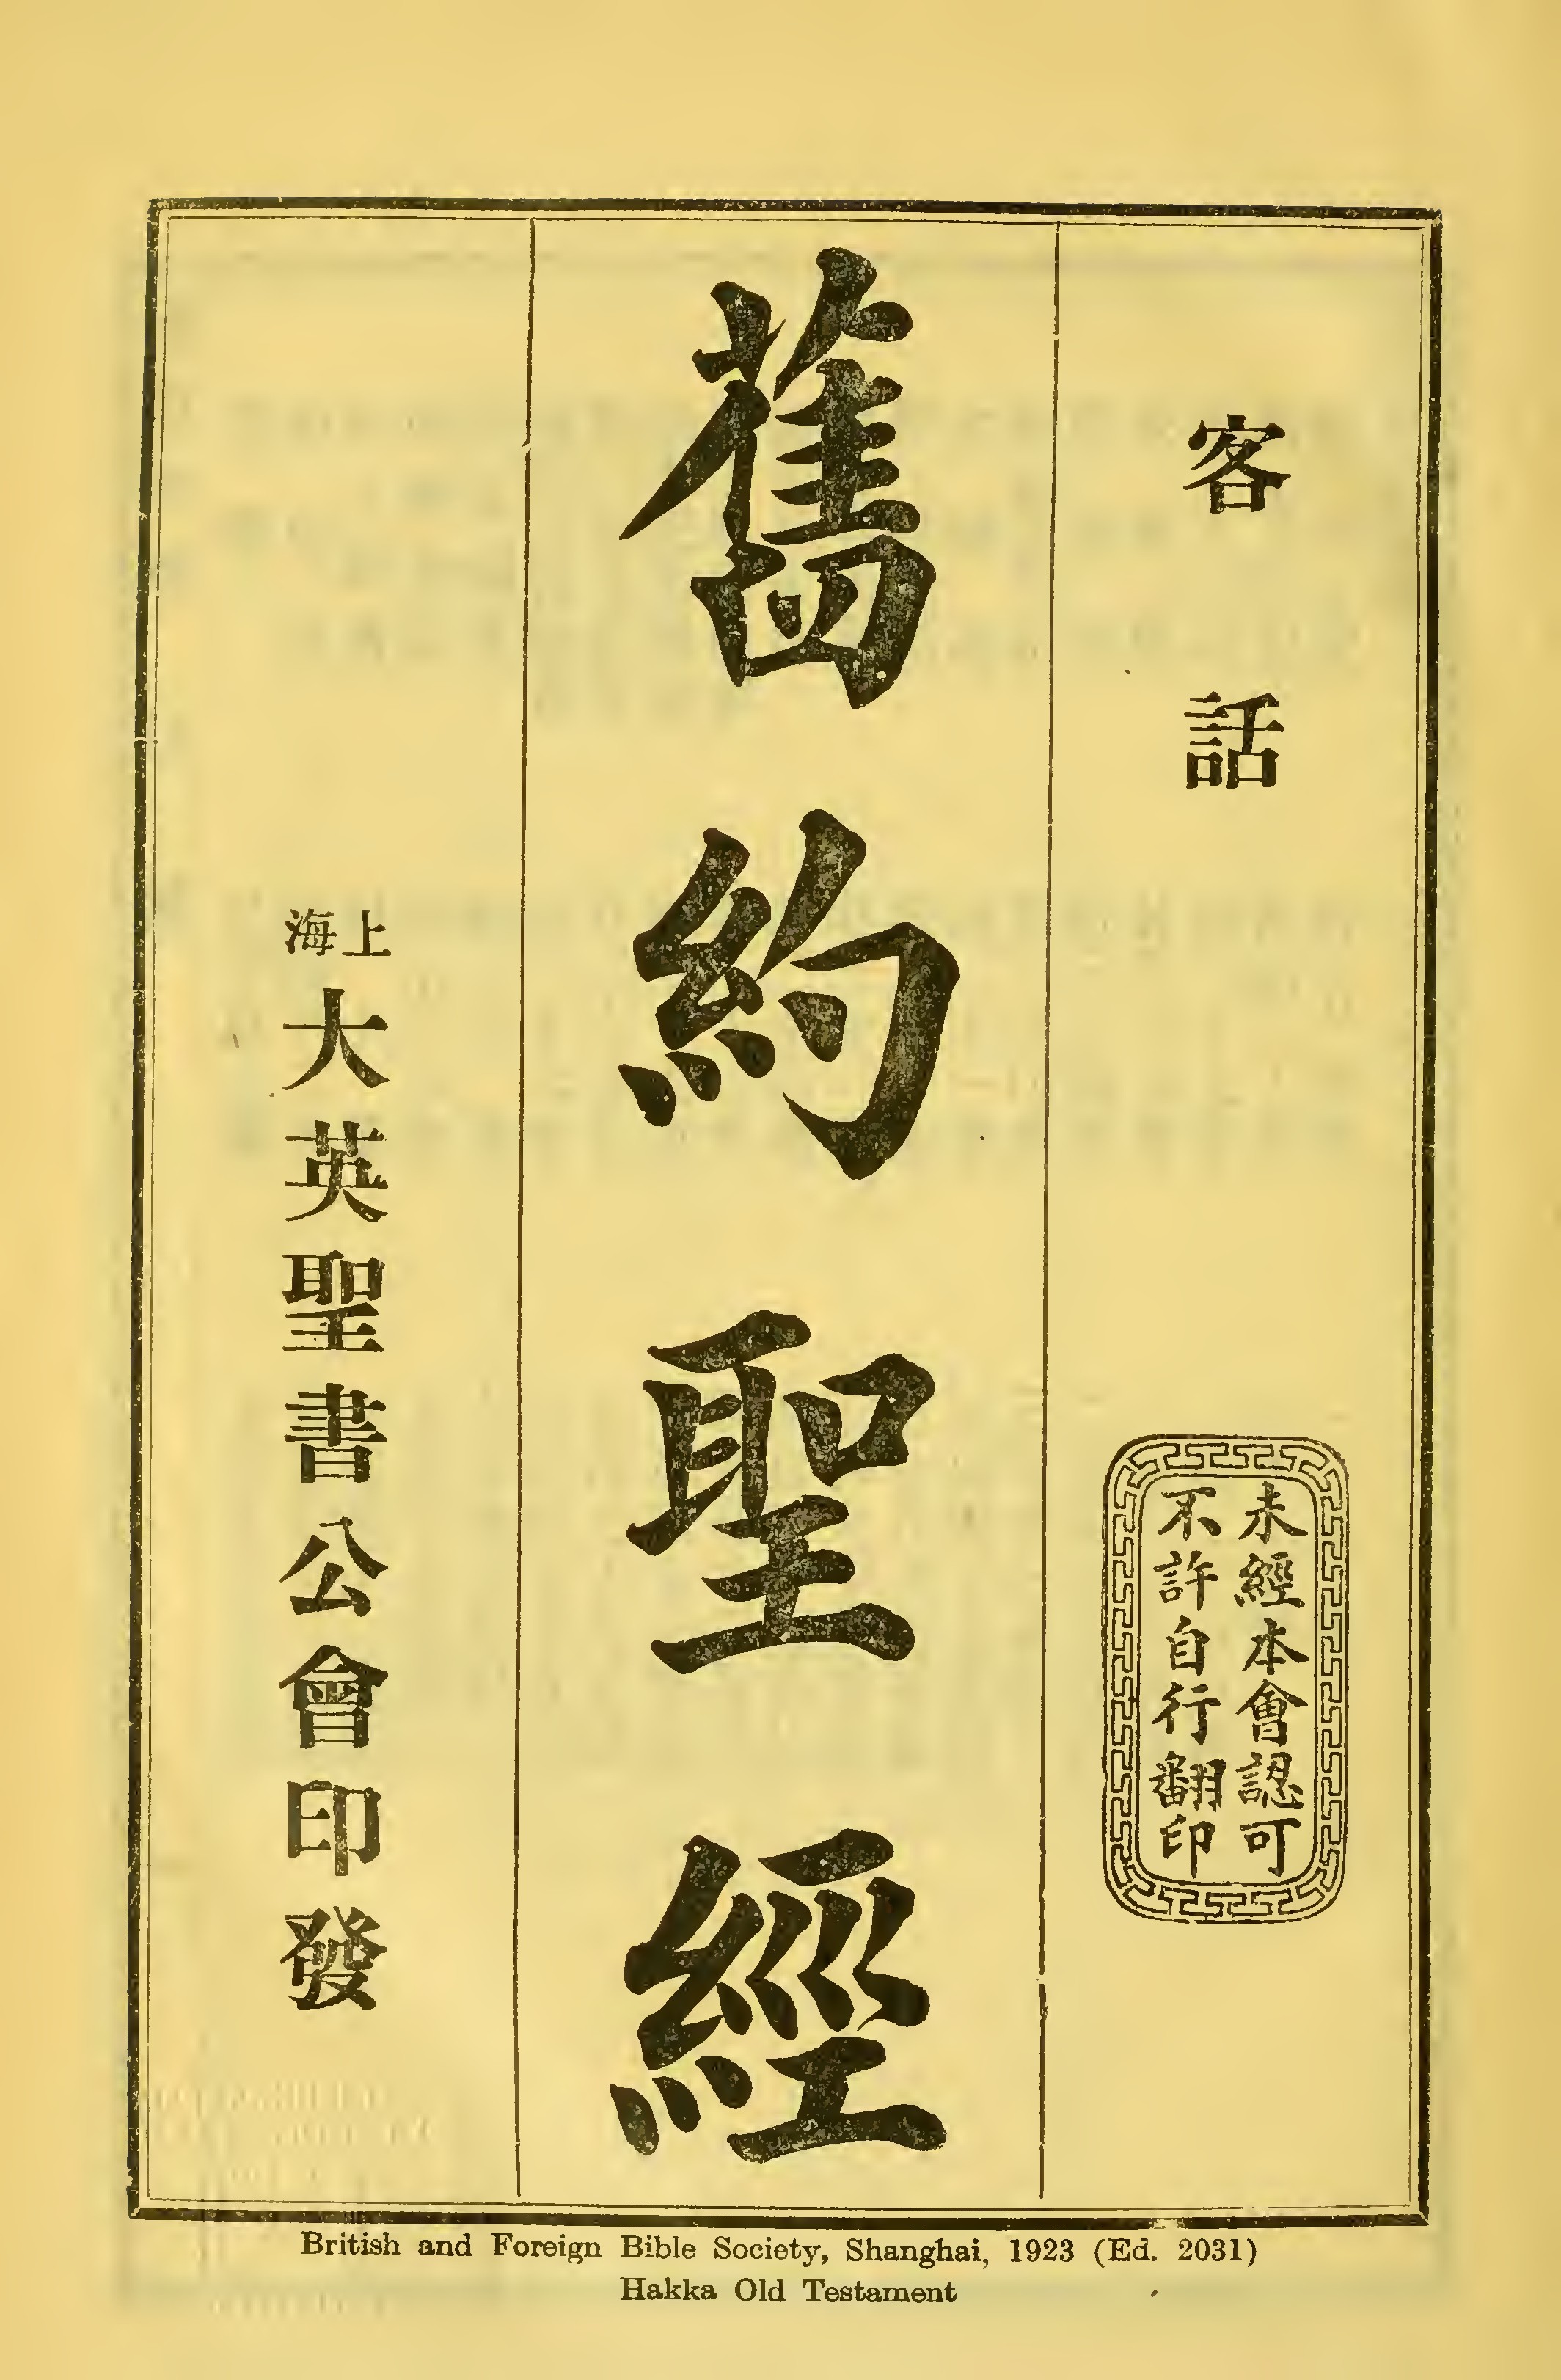 客話
未經本會認可
不許自行翻印
舊約聖經
上海
大英聖書公會印發
British and Foreign Bible Society, Shanghai, 1923 (Ed. 2031)
Hakka Old Testament